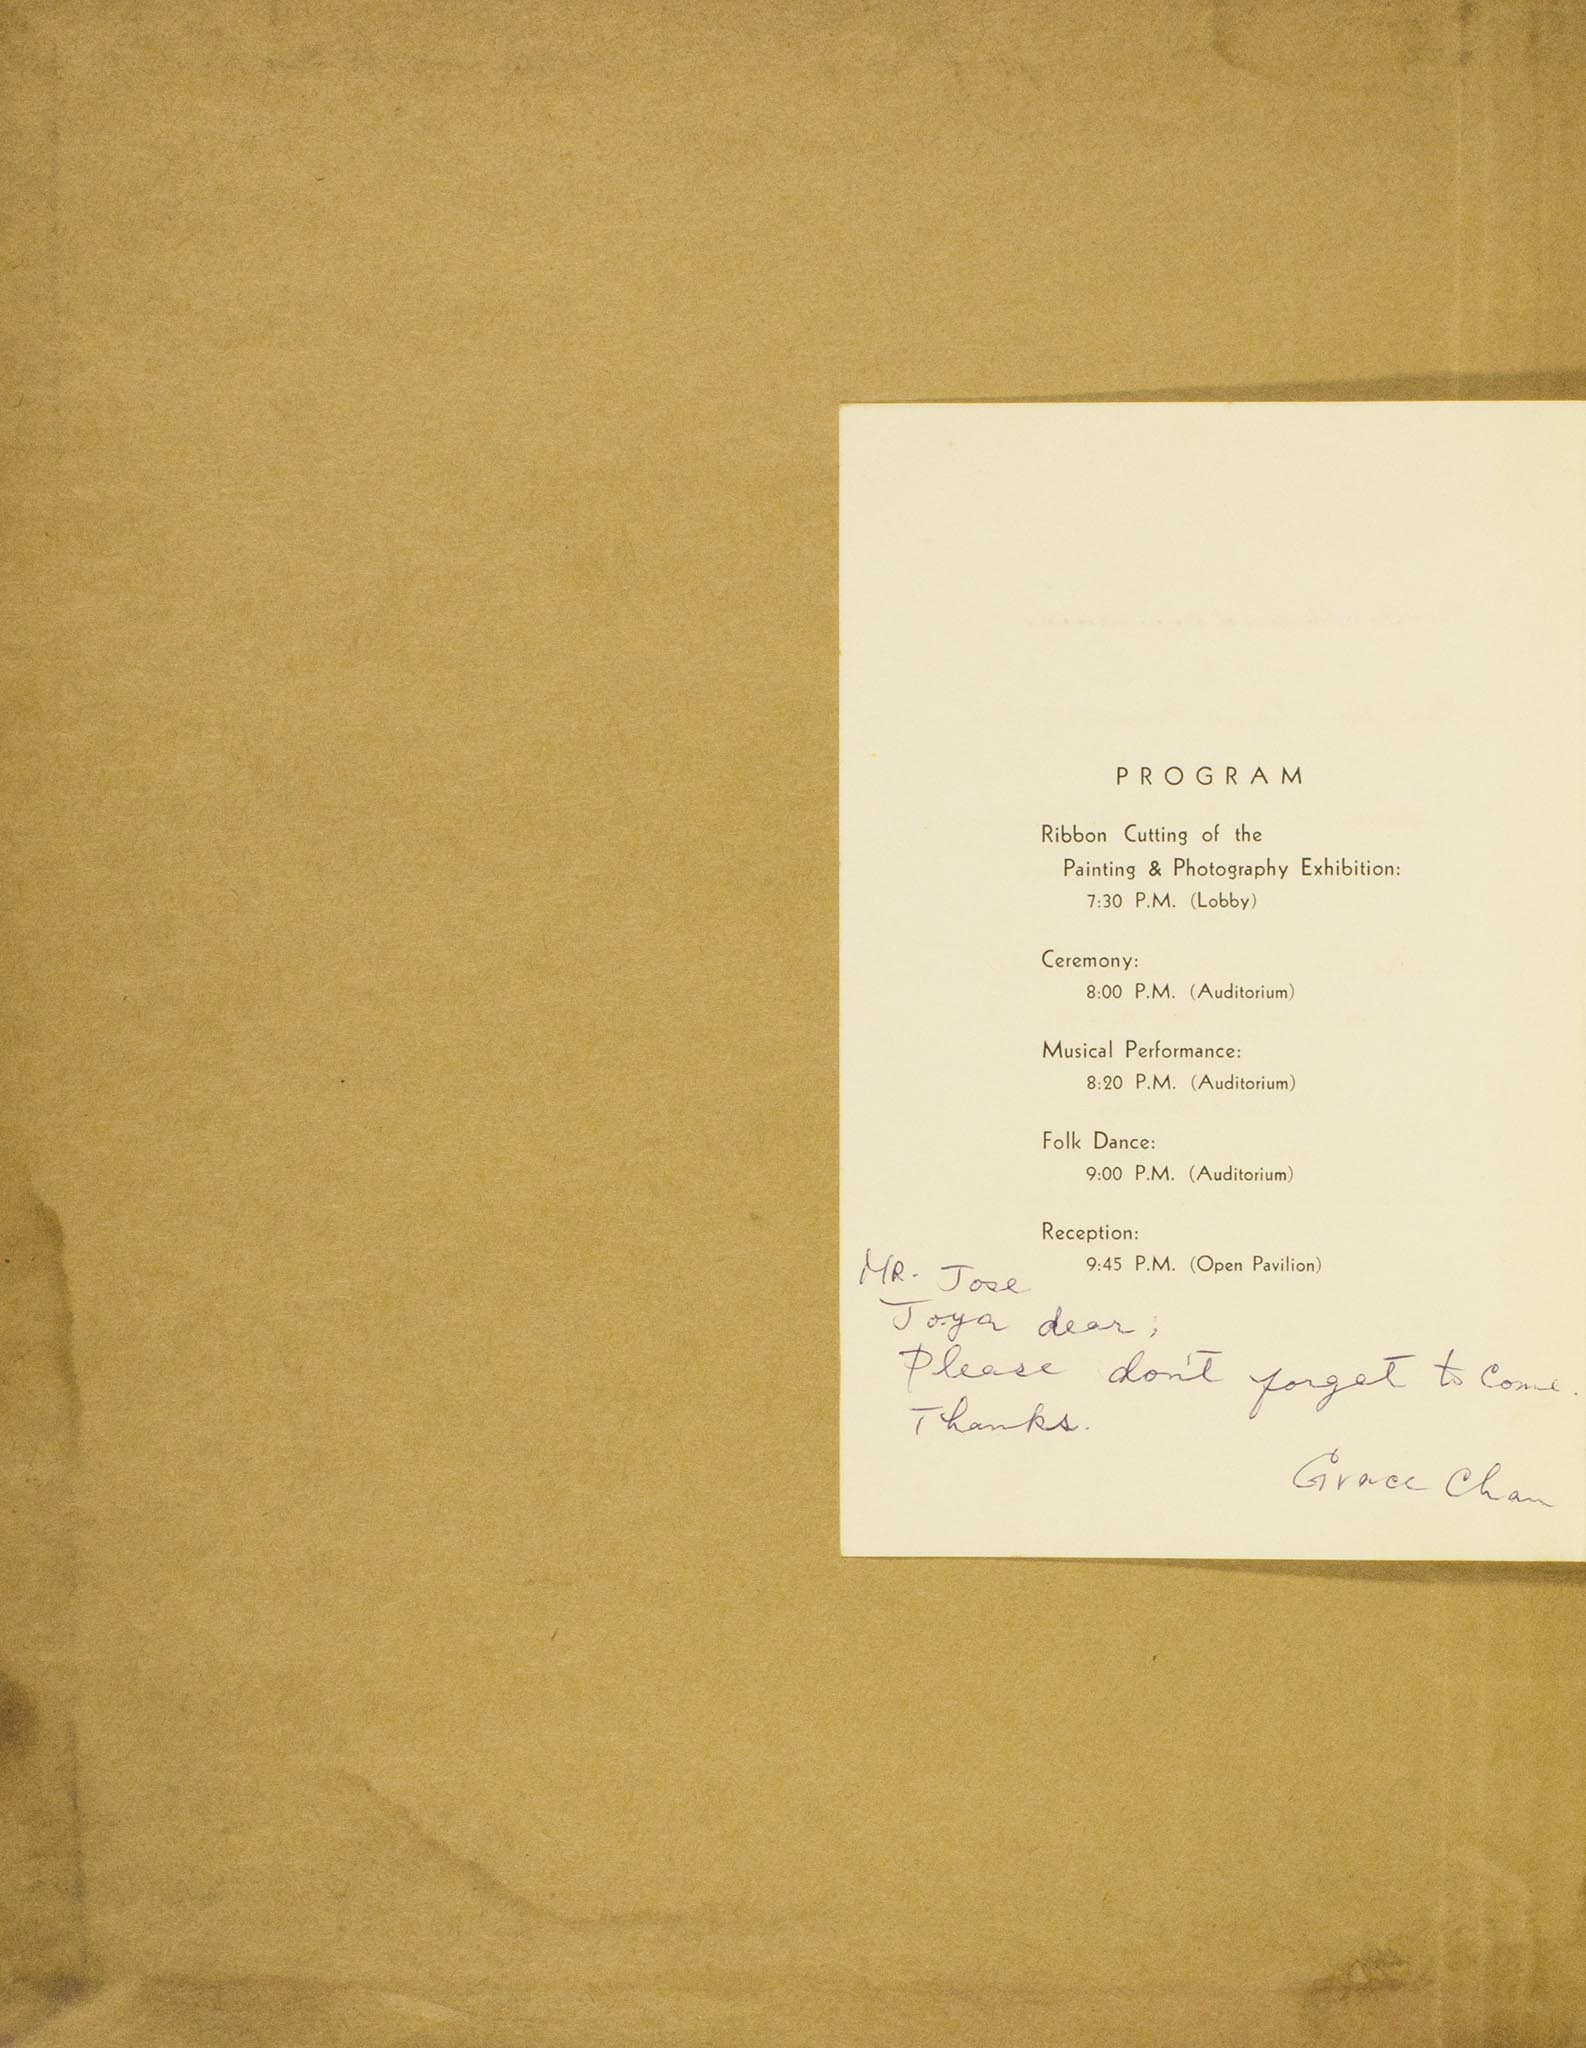 PROGRAM
Ribbon Cutting of the
Painting & Photography Exhibition:
7:30 P.M. (Lobby)
Ceremony:
8:00 P.M. (Auditorium)
Musical Performance:
8:20 P.M. (Auditorium)
Folk Dance:
9:00 P.M. (Auditorium)
Reception:
9:45 P.M. (Open Pavilion)
MR. Jose
Joya dear;
Please don't forget to come.
Thanks.
Grace Chan